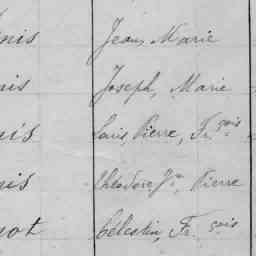 nis Jean, Marie
nis Joseph, Marie
uis Louis, Pierre, Fr.çois
nis Théodore, Jn, Pierre
not Célestin, Fr.çois